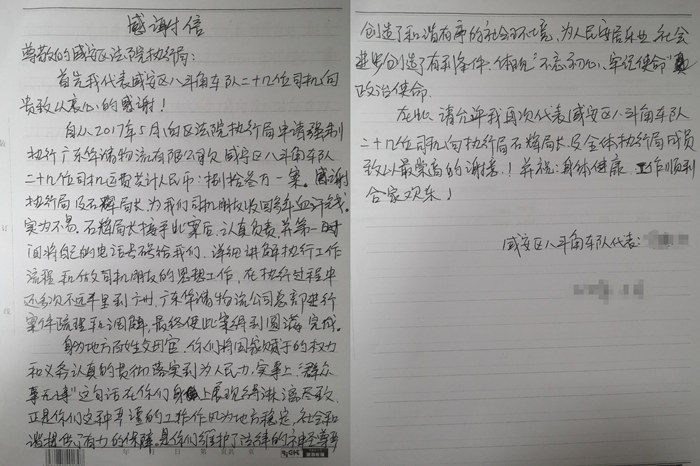 感谢信
尊敬的咸安区法院执行局:
首先我代表咸安区八斗角车队二十几位司机向
贵致以衷心的感谢!
自从2017年5月向区法院执行局申请强制
执行广东华诱物流有限公司欠咸安区八斗角车队
二十几位司机运费共计人民币:捌拾叁万一案。感谢
执行局及石辉局长为我们司机朋友收回多年血汗钱,
实为不易。石辉局长接手此案后,认真负责,并第一时
间将自己的电话号码给我们,详细讲解执行工作
流程和做司机朋友的思想工作,在执行过程中
还多次不远千里到广州,广东华诱物流公司总部进行
案件疏理和调解,最终使此案得到圆满完成。
身为地方附性父母官,你们将国家赋于的权力
和义务认真的贯彻落实到为人民办实事上,"群众
事无小事"这句话在你们身上展现得淋漓尽致,
正是你们这种严谨的工作作风为地方稳定,社会和
谐提供了有力的保障,是你们维护了法律的神圣尊严
创造了和谐有序的社会环境,为人民安居乐业,社会
进步创造了有利条件,体现"不忘初心,牢记使命"真
政治使命.
在此,请允许我再次代表咸安区八斗角车队
二十几位司机向执行局石辉局长及全体执行局成员
致以最崇高的谢意!并祝:身体健康 工作顺利
合家欢乐!
咸安区八斗角车队代表: